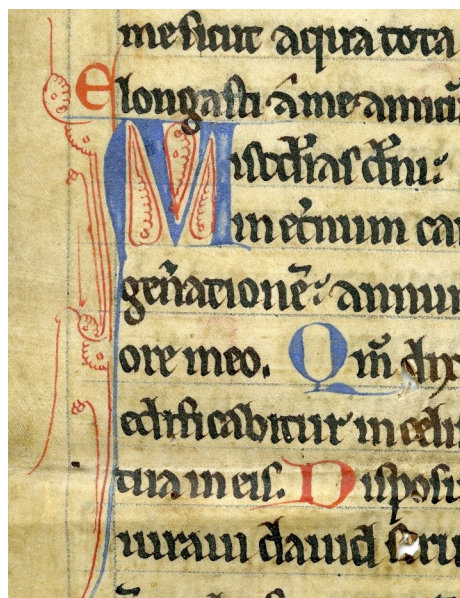 me sicut aqua tota
Elongasti a me amicu
Misc̄dias dn̄i:
in et̄num can
gen̄atione: annun
ore meo. Qm̄ dix
edificabitur in celis
tua in eis. Disposui
iuraui dauid seru